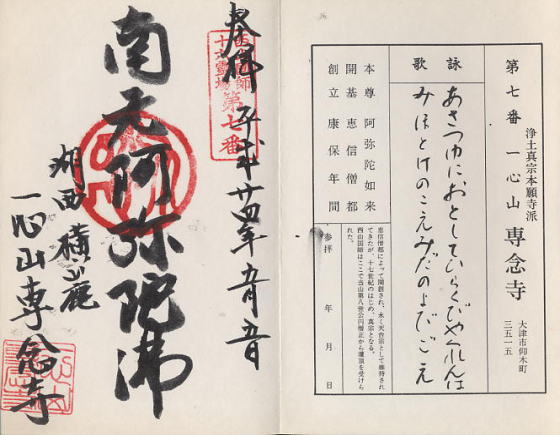 浄土真宗本願寺派
第七番 一心山 専念寺
大津市仰木町
三五一五
詠歌
あさつゆにおとしてひらくびやくれんは
みほとけのこえみだのよびごえ
本尊 阿弥陀如来
開基 恵信僧都
創立 康保年間
恵信僧都によって開創され、永く天台宗として維持され
てきたが、十七世紀のはじめ、真宗となる。
西山国師はここで当山第八世公円僧正から灌頂を受けら
れた。
参拝 年 月 日
奉拝 平成廿四年五月五日
十六霊場
第七番
南无阿弥陀佛
湖西 横山麓
一心山専念寺